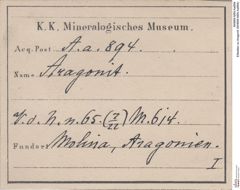 K. K. Mineralogisches Museum.
Acq. Post A. a. 894.
Name Aragonit.
V. d. N. n. 65. (7/22) M. 614.
Fundort Molina, Aragonien.
I